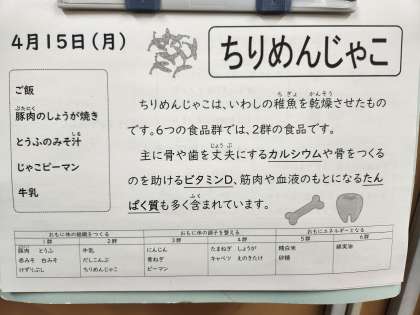 4月15日(月)
ちりめんじゃこ
ご飯
豚肉のしょうが焼き
とうふのみそ汁
じゃこピーマン
牛乳
ちりめんじゃこは、いわしの稚魚を乾燥させたもの
です。6つの食品群では、2群の食品です。
主に骨や歯を丈夫にするカルシウムや骨をつくる
のを助けるビタミンD、筋肉や血液のもとになるたん
ぱく質も多く含まれています。
おもに体の組織をつくる おもに体の調子を整える おもにエネルギーとなる
1群 2群 3群 4群 5群 6群
豚肉 とうふ 牛乳 にんじん たまねぎ しょうが 精白米
赤みそ 白みそ だしこんぶ 青ねぎ キャベツ えのきたけ 砂糖
けずりぶし ちりめんじゃこ ピーマン